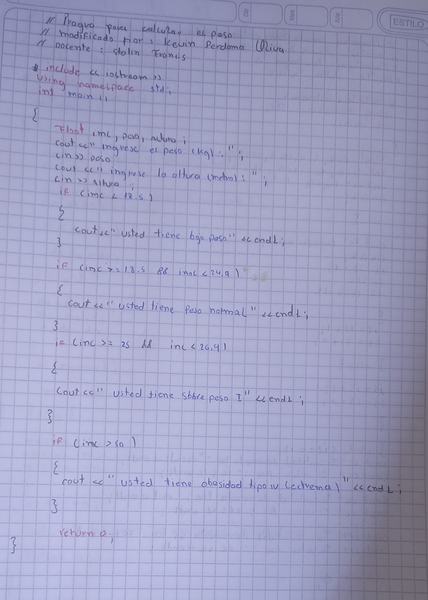 ESTILO
// Progra para calcular el peso
// modificado por: Kevin Perdomo Oliva
// docente: Stalin Francis
# include << iostream >>
using namespace std;
int main ()
{
Float imc, peso, altura;
cout <<" ingrese el peso (kg): ";
cin >> peso
cout <<" ingrese la altura (metro): ";
cin >> altura;
if (imc < 18.5)
{
cout <<" usted tiene bajo peso" << endl;
}
if (imc >= 18.5 && imc < 24.9)
{
cout <<" usted tiene peso normal" << endl;
}
if (imc >= 25 && imc < 26.9)
{
cout <<" usted tiene sobre peso I" << endl;
}
if (imc > 50)
{
cout <<" usted tiene obesidad tipo IV (extrema)" << endl;
}
return 0;
}